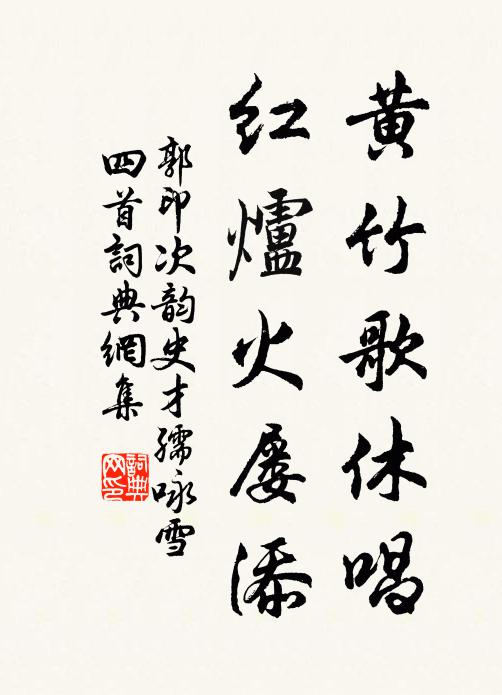 黄竹歌休唱
紅爐火屡添
郭印次韵史才孺咏雪
四首詞典網集
詞典网印